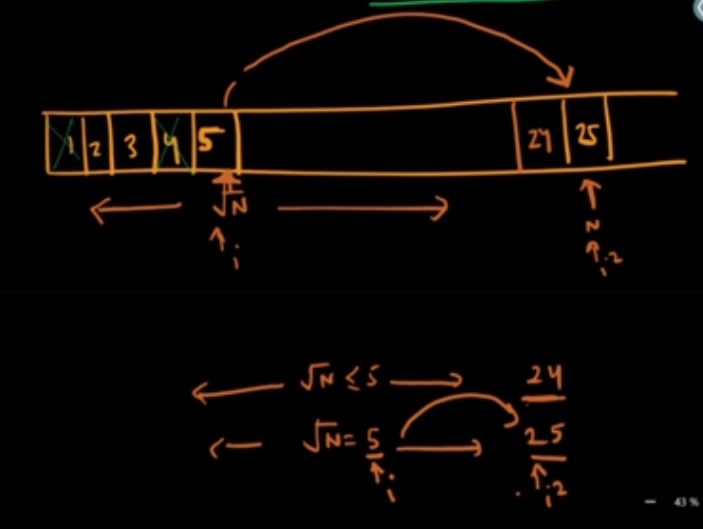 1 2 3 4 5 24 25
√N N
i i2
√N ≤ 5 24
√N = 5 25
i i2
43 %